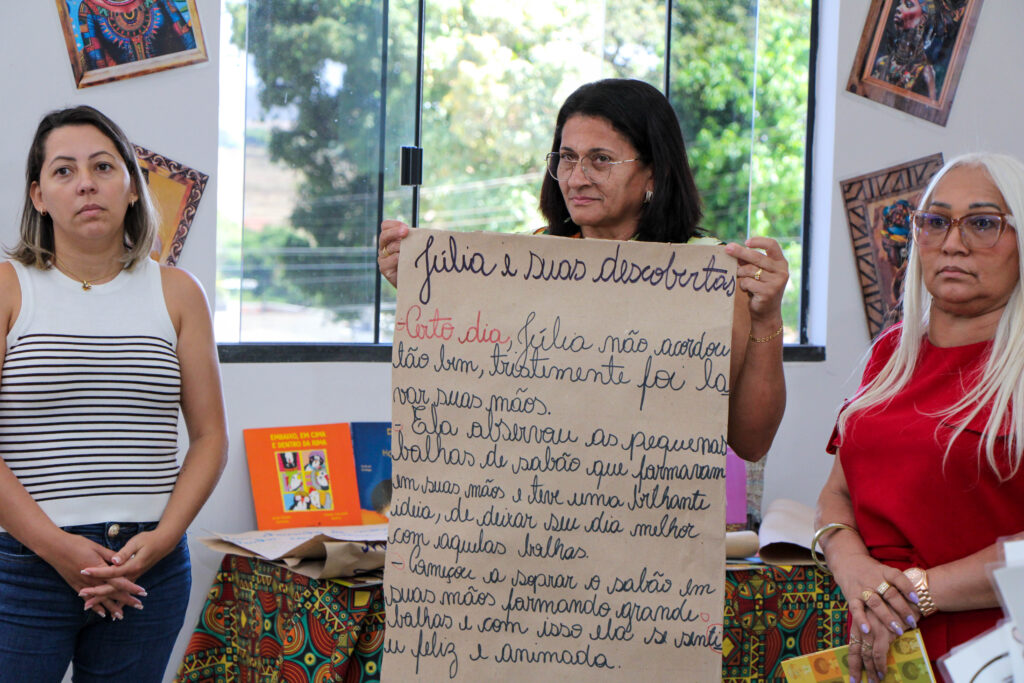 Júlia e suas descobertas
- Certo dia, Júlia não acordou
tão bem, tristimente foi la
var suas mãos.
- Ela observou as pequenas
bolhas de sabão que formavam
em suas mãos e teve uma brilhante
idéia, de deixar seu dia melhor
com aquelas bolhas.
- Começou a soprar o sabão em
suas mãos formando grande
bolhas e com isso ela se senti
u feliz e animada.
EMBAIXO, EM CIMA
E DENTRO DA RIMA